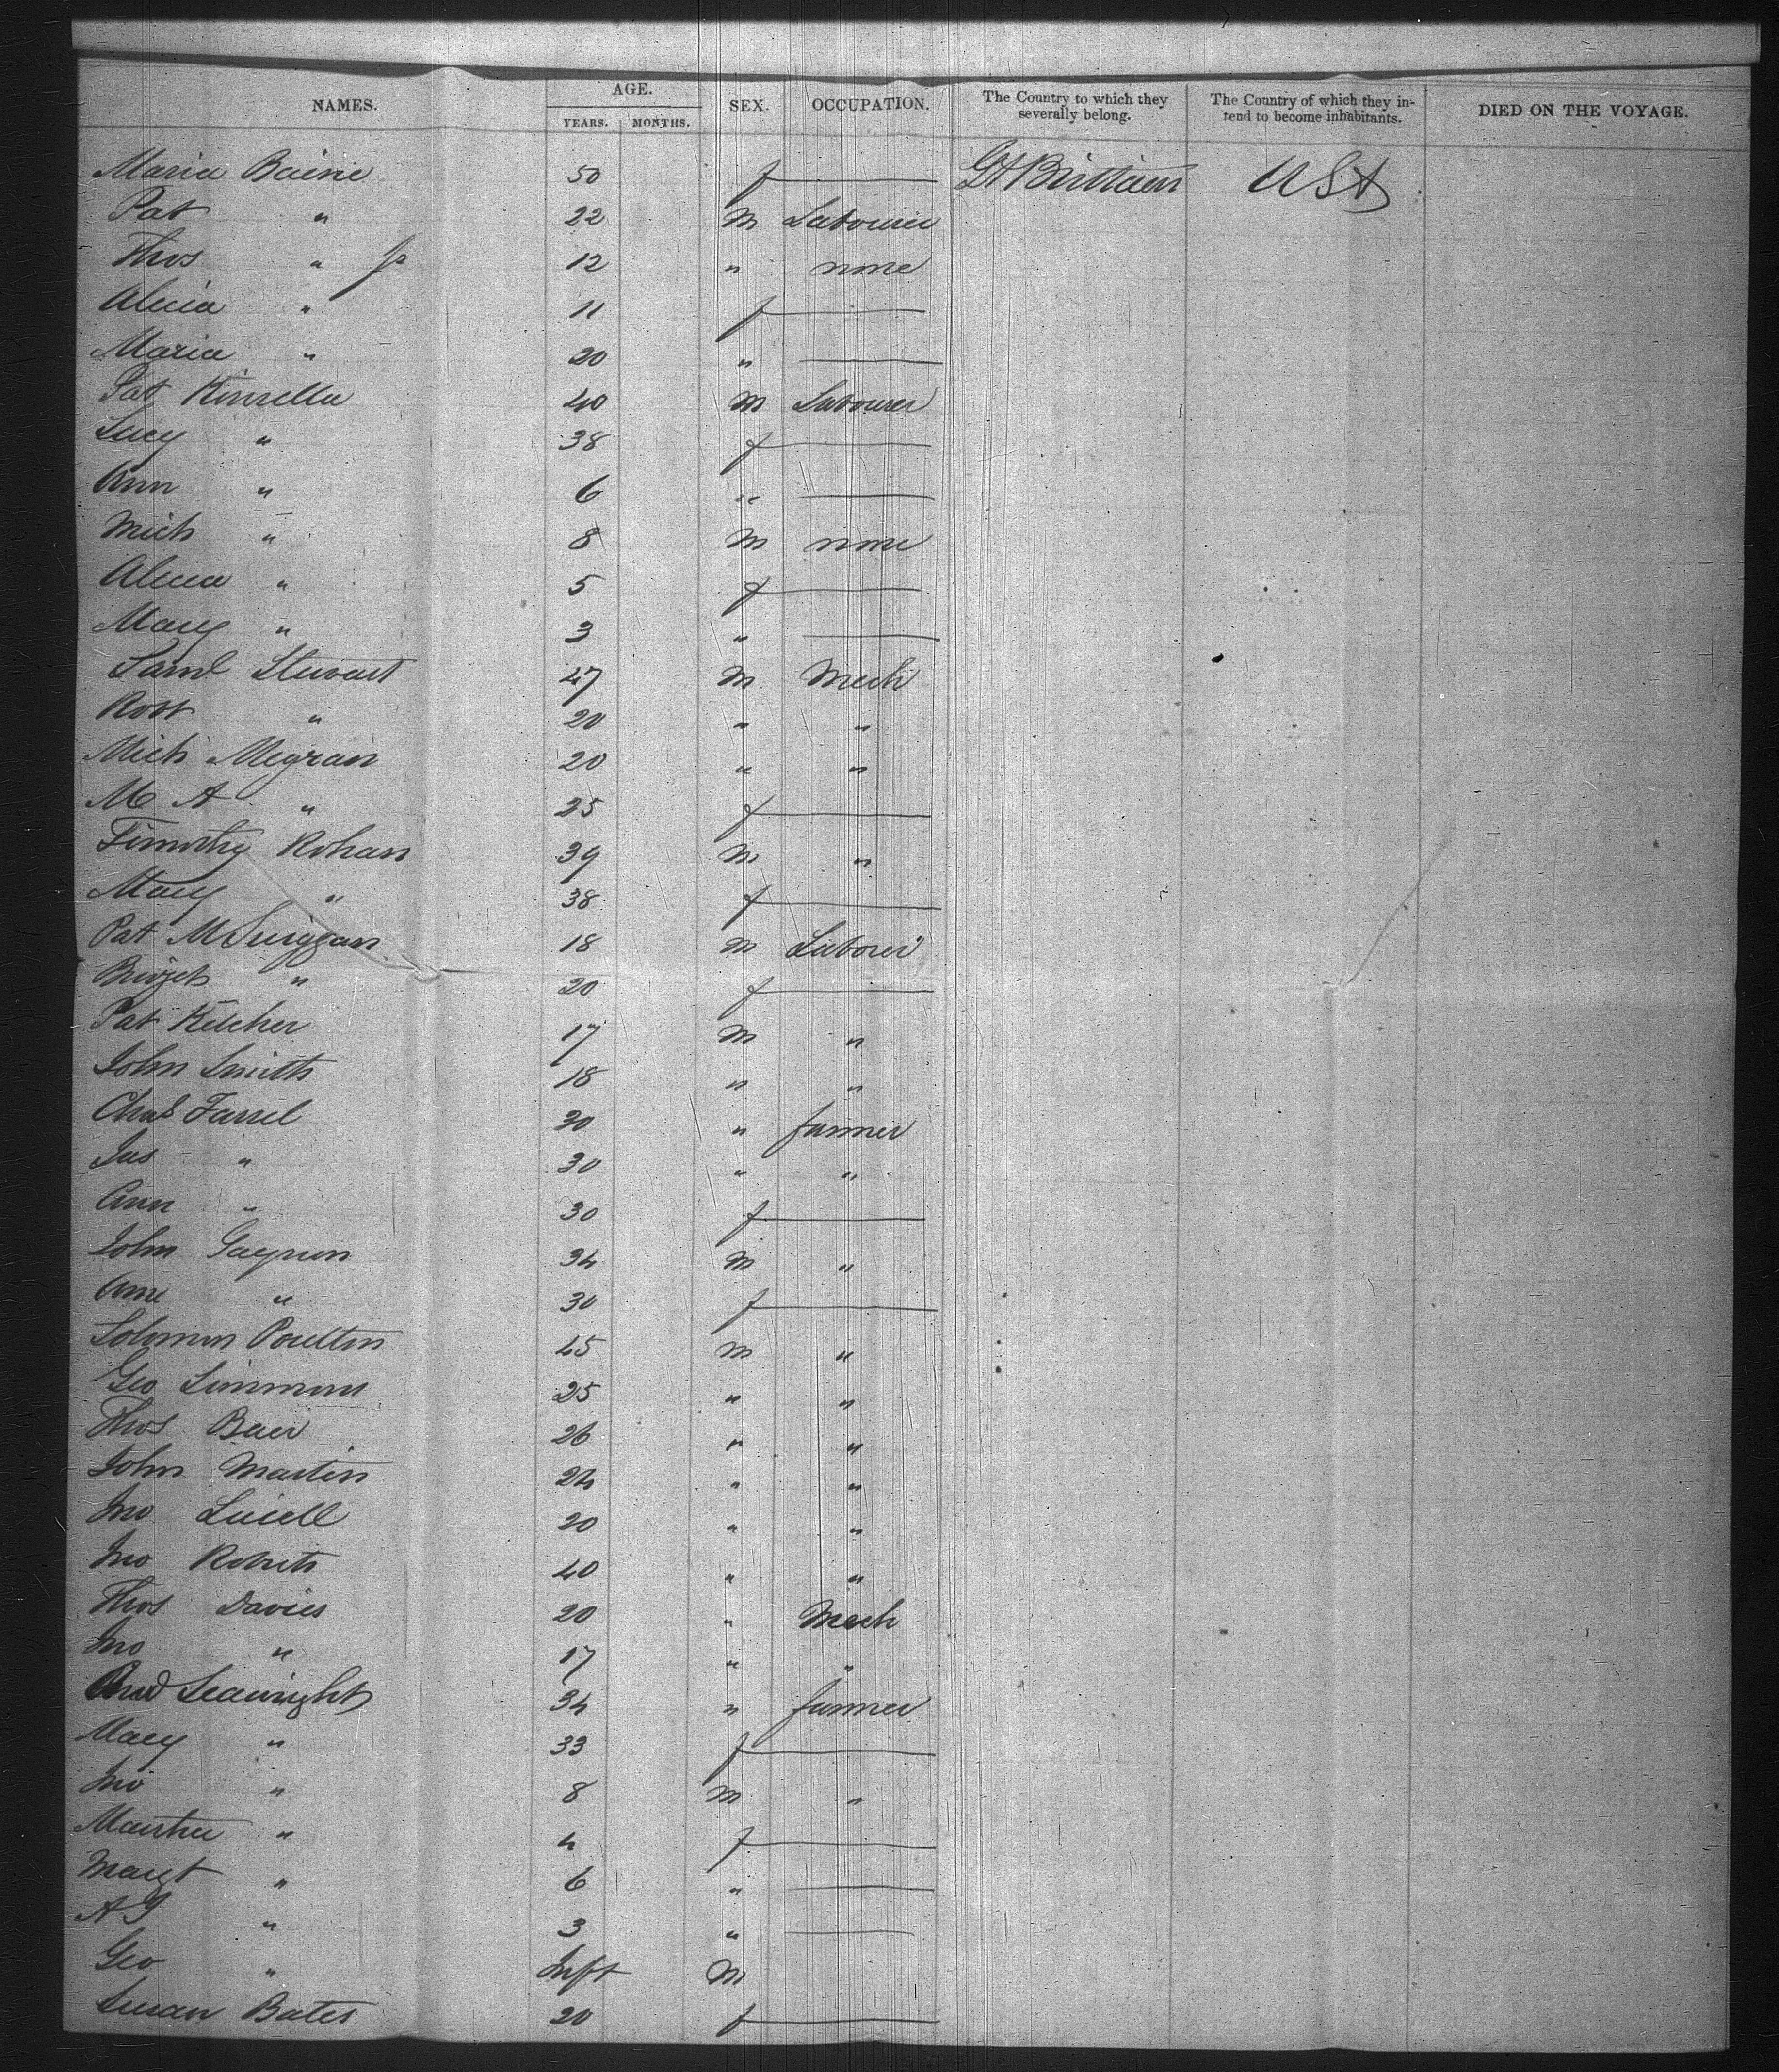 NAMES. AGE. YEARS. MONTHS. SEX. OCCUPATION. The Country to which they severally belong. The Country of which they intend to become inhabitants. DIED ON THE VOYAGE.
Maria Baine 50 f — Gt Brittain USA
Pat " 22 M Labourer
Thos " Jr 12 " none
Alicia " 11 f —
Maria " 20 " —
Pat Kinsella 40 M Labourer
Lucy " 38 f —
Ann " 6 " —
Mich " 8 M none
Alicia " 5 f —
Mary " 3 " —
Saml Stewart 47 M Mech
Robt " 20 " "
Mich Megran 20 " "
M A " 25 f —
Timothy Rohan 39 M "
Mary " 38 f —
Pat McGuiggan 18 M Laborer
Bridget " 20 f —
Pat Kelcher 17 M "
John Smith 18 " "
Chas Farrel 30 " farmer
Jas " 30 " "
Ann " 30 f —
John 34 M "
Ann " 30 f —
Solomon Poulton 45 M "
Geo Simmons 25 " "
Thos 26 " "
John Martin 24 " "
Jno 20 " "
Jno Roberts 40 " "
Thos Davies 20 " Mech
Jno " 17 " "
Seawright 34 " farmer
Mary " 33 f —
Jno " 8 M "
Martha " 4 f —
Margt " 6 " —
A J " 3 " —
Geo " Inft M
Susan Bates 20 f —